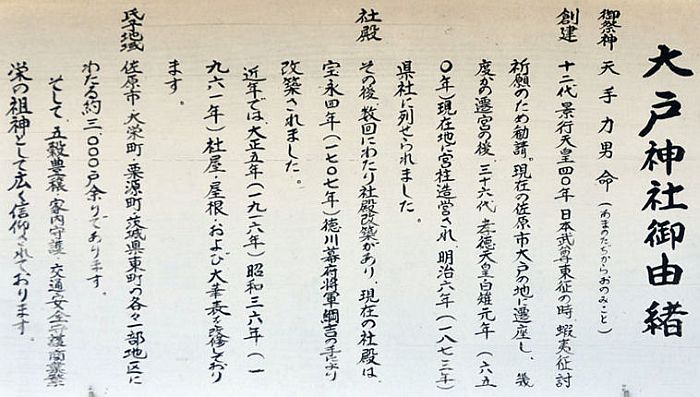 大戸神社御由緒
御祭神 天手力男命(あまのたぢからおのみこと)
創建 十二代景行天皇四〇年日本武尊東征の時、蝦夷征討
祈願のため勧請。現在の佐原市大戸の地に遷座し、幾
度かの遷宮の後、三十六代孝徳天皇白雉元年(六五
〇年)現在地に宮柱造営され、明治六年(一八七三年)
県社に列せられました。
社殿 その後、数回にわたり社殿改築があり、現在の社殿は、
宝永四年(一七〇七年)徳川幕府将軍綱吉の手により
改築されました。
近年では、大正五年(一九一六年)昭和三六年(一
九六一年)社屋・屋根・および大華表を改修しており
ます。
氏子地域 佐原市・大栄町・栗源町・茨城県東町の各々一部地区に
わたる約三、〇〇〇戸余りであります。
そして、五穀豊穣・家内守護・交通安全守護・商業繁
栄の祖神として広く信仰されております。